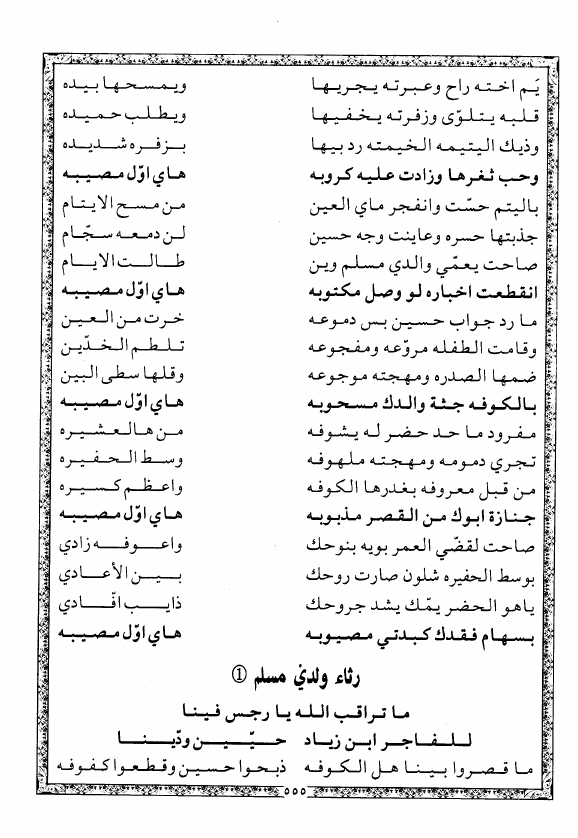 يَم اخته راح وعبرته يجريها ويمسحها بيده
قلبه يتلوّى وزفرته يخفيها ويطلب حميده
وذيك اليتيمه الخيمته رد بيها بزفره شديده
وحب ثغرها وزادت عليه كروبه هاي اوّل مصيبه
باليتم حسّت وانفجر ماي العين من مسح الايتام
جذبتها حسره وعاينت وجه حسين لن دمعه سجّام
صاحت يعمّي والدي مسلم وين طالت الايام
انقطعت اخباره لو وصل مكتوبه هاي اوّل مصيبه
ما رد جواب حسين بس دموعه خرت من العين
وقامت الطفله مروّعه ومفجوعه تلطم الخدّين
ضمها الصدره ومهجته موجوعه وقلها سطى البين
بالكوفه جثة والدك مسحوبه هاي اوّل مصيبه
مفرود ما حد حضر له يشوفه من هالعشيره
تجري دمومه ومهجته ملهوفه وسط الحفيره
من قبل معروفه بغدرها الكوفه واعظم كسيره
جنازة ابوك من القصر مذبوبه هاي اوّل مصيبه
صاحت لقضّي العمر بويه بنوحك واعوفه زادي
بوسط الحفيره شلون صارت روحك بين الأعادي
ياهو الحضر يمّك يشد جروحك ذايب افّادي
بسهام فقدك كبدتي مصيوبه هاي اوّل مصيبه
رثاء ولدي مسلم ①
ما تراقب الله يا رجس فينا
للفاجر ابن زياد حيّين ودّينا
ما قصروا بينا هل الكوفه ذبحوا حسين وقطعوا كفوفه
٥٥٥